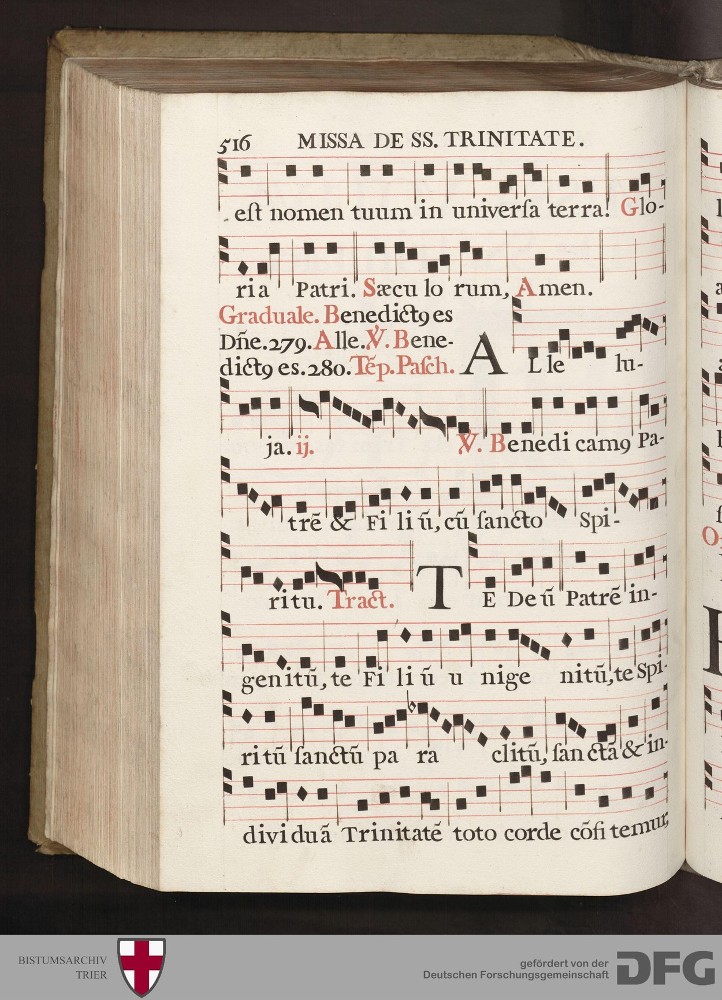 516 MISSA DE SS. TRINITATE.
est nomen tuum in universa terra! Glo-
ria Patri. Sæcu lo rum, Amen.
Graduale. Benedictꝯ es
Dñe. 279. Alle. ℣. Bene-
dictꝯ es. 280. Tẽp. Pasch. A L le lu-
ja. ij. ℣. Benedi camꝯ Pa-
trẽ & Fi li ũ, cũ sancto Spi-
ritu. Tract. T E De ũ Patrẽ in-
genitũ, te Fi li ũ u nige nitũ, te Spi-
ritũ sanctũ pa ra clitũ, san ctã & in-
dividuã Trinitatẽ toto corde cõfi temur,
BISTUMSARCHIV
TRIER
gefördert von der
Deutschen Forschungsgemeinschaft
DFG